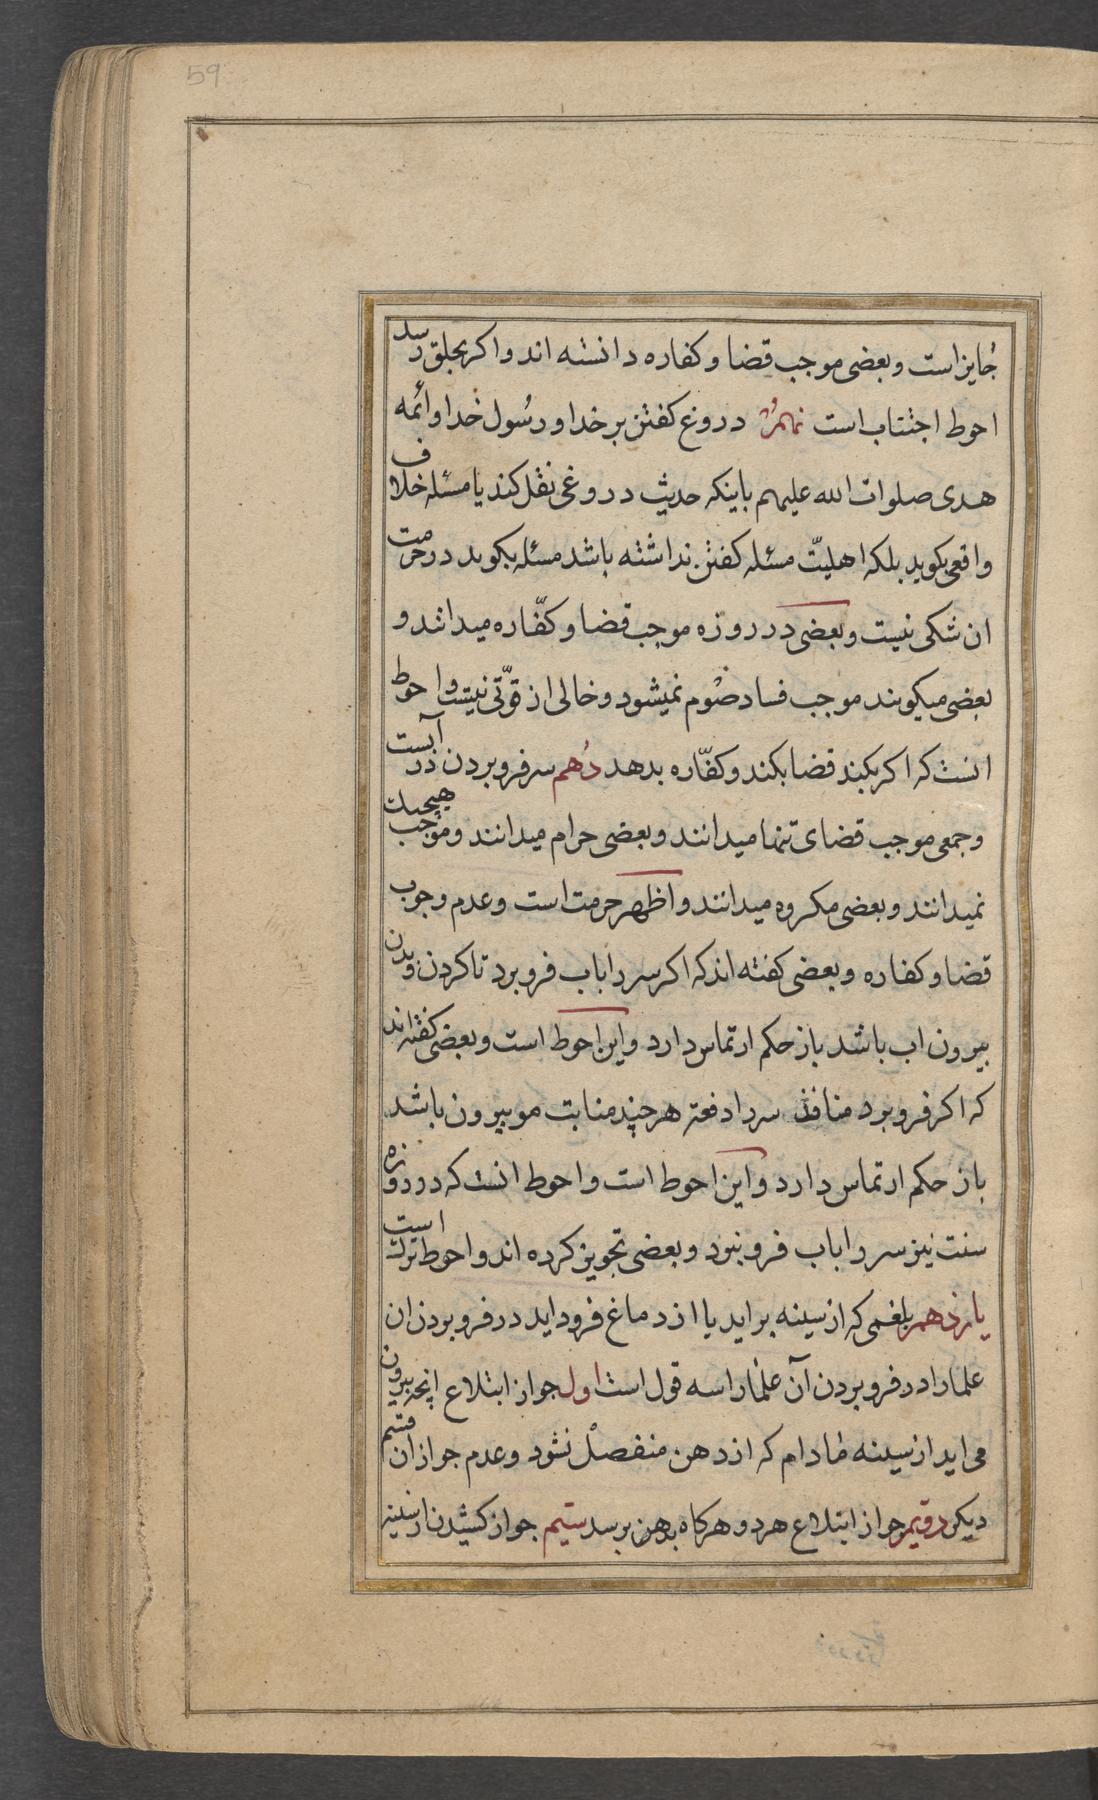 59
جایز است و بعضی موجب قضا و کفاره دانسته اند و اکر بحلق رسد
احوط اجتناب است نهم دروغ کفتن بر خدا و رسول خدا و ائمه
هدی صلوات الله علیهم باینکه حدیث دروغی نقل کند یا مسئله خلاف
واقعی بکوید بلکه اهلیّت مسئله کفتن نداشته باشد مسئله بکوید در حرمت
ان شکی نیست و بعضی در روزه موجب قضا و کفّاره میدانند و
بعضی میکویند موجب فساد صوم نمیشود و خالی از قوّتی نیست و احوط
انست که اکر بکند قضا بکند و کفّاره بدهد دُهم سر فرو بردن در آبست
و جمعی موجب قضای تنها میدانند و بعضی حرام میدانند و موجب هیچیک
نمیدانند و بعضی مکروه میدانند و اظهر حرمت است و عدم وجوب
قضا و کفاره و بعضی کفته اند که اکر سر را باب فرو برد تا کردن و بدن
بیرون اب باشد باز حکم ارتماس دارد و این احوط است و بعضی کفته اند
که اکر فرو برد منافذ سر را دفعة هر چند منابت مو بیرون باشد
باز حکم ارتماس دارد و این احوط است و احوط انست که در روزه
سنت نیز سر را باب فرو نبرد و بعضی تجویز کرده اند و احوط ترکست
یازدهم بلغمی که از سینه براید یا از دماغ فرود اید در فرو بردن ان
علما را در فرو بردن آن علما را سه قول است اول جواز ابتلاع انچه بیرون
می اید از سینه مادام که از دهن منفصل نشود و عدم جواز ان قسم
دیکر دویّم جواز ابتلاع هر دو هرکاه بدهن برسد سیّم جواز کشیدن از سینه